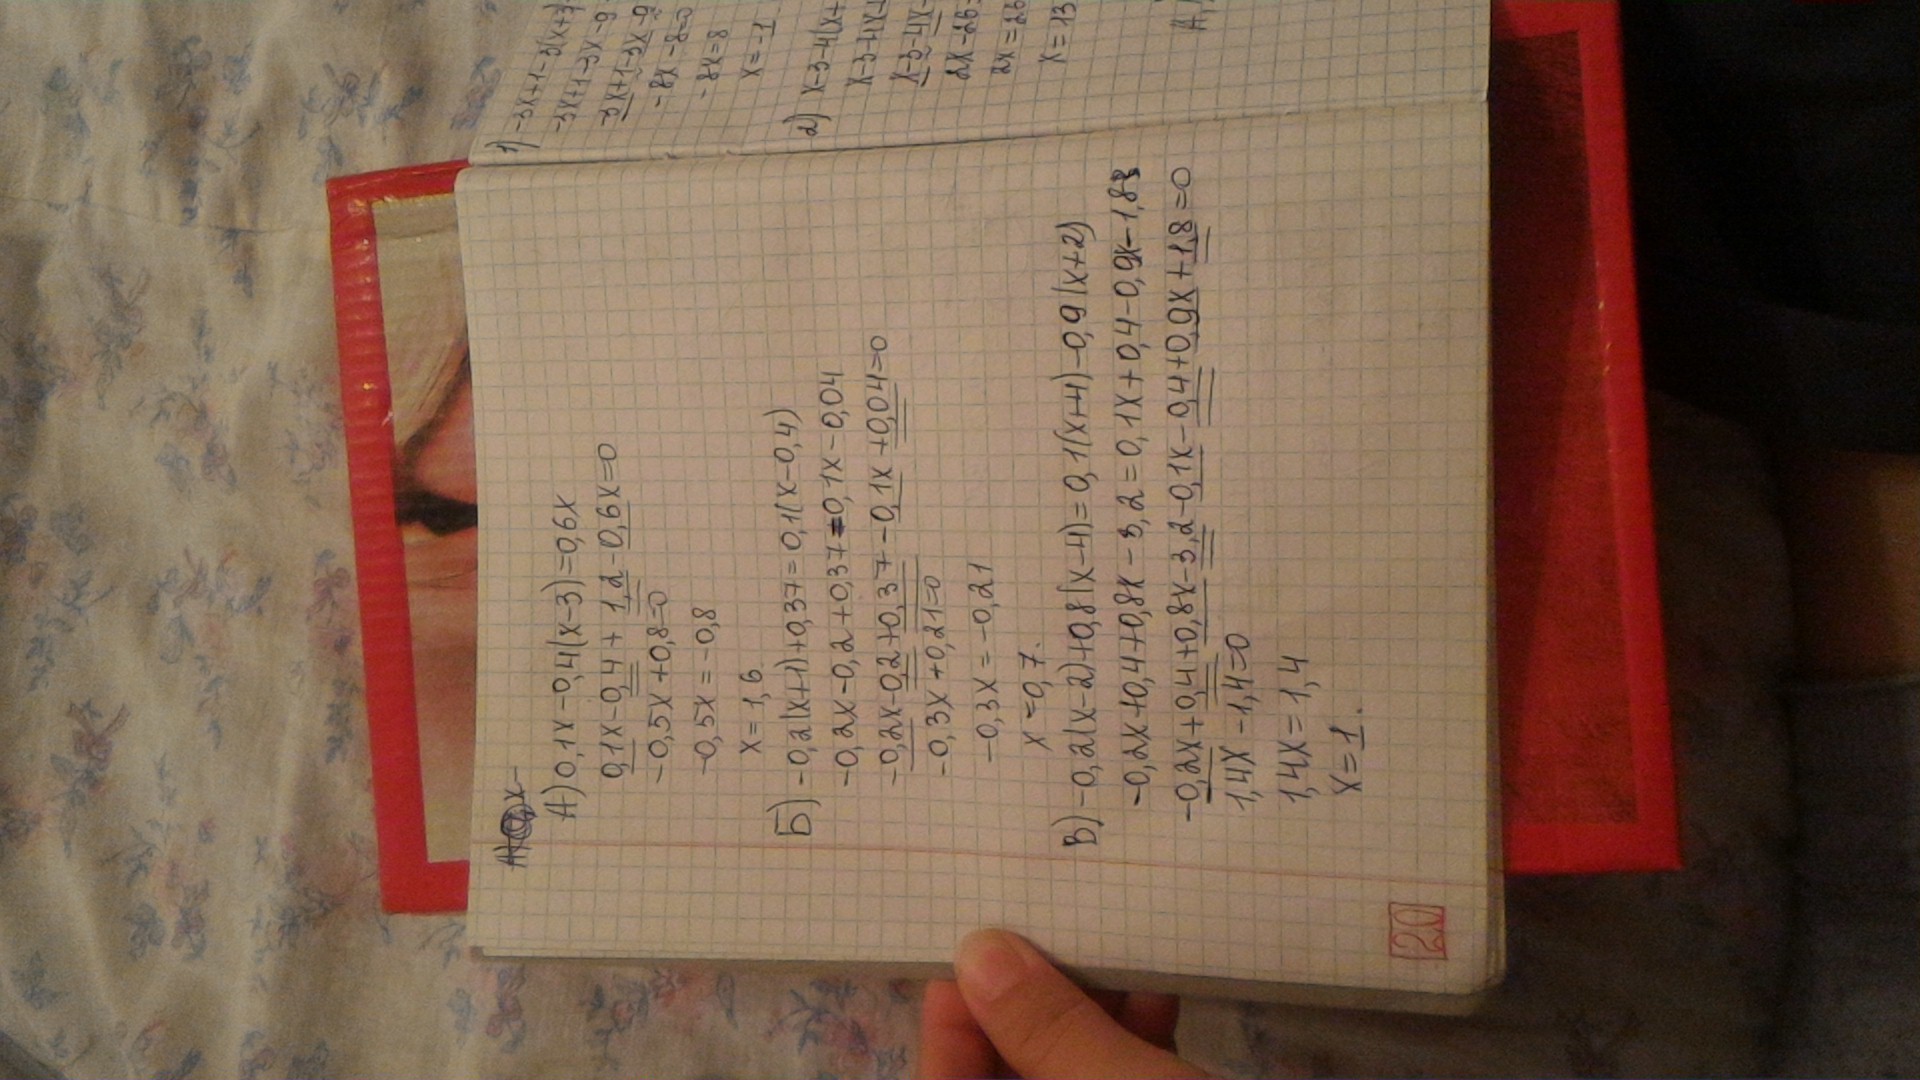 А) 0,1x-0,4(x-3)=0,6x
0,1x-0,4+1,2-0,6x=0
-0,5x+0,8=0
-0,5x=-0,8
x=1,6
Б) -0,2(x+1)+0,37=0,1(x-0,4)
-0,2x-0,2+0,37=0,1x-0,04
-0,2x-0,2+0,37-0,1x+0,04=0
-0,3x+0,21=0
-0,3x=-0,21
x=0,7.
В) -0,2(x-2)+0,8(x-4)=0,1(x+4)-0,9(x+2)
-0,2x+0,4+0,8x-3,2=0,1x+0,4-0,9x-1,8
-0,2x+0,4+0,8x-3,2-0,1x-0,4+0,9x+1,8=0
1,4x-1,4=0
1,4x=1,4
x=1.
20
1) -3x+1-3(x+3)
-3x+1-3x-9
-3x+1-3x-9
-8x-8=0
-8x=8
x=-1
2) x-3-4(x+
x-3-4x+
x-3-4x-
2x-26=
2x=26
x=13